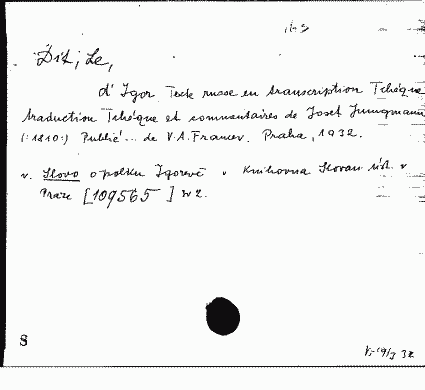 Dit, Le,
d'Igor. Texte russe en transcription Tchéque
traduction Tchéque et commentaires de Josef Jungmann
(:1810:) Publié ... de V.A. Francev. Praha, 1932.
v. Slovo o polku Igorevě v Knihovna Slovan. úst. v
Praze [109565] sv 2.
S